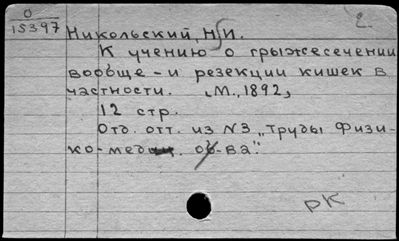 О
15397
2.
Никольский, Н.И.
К учению о грыжесечении
вообще - и резекции кишек в
частности. [М., 1892]
12 стр.
Отд. отт. из N3 „Труды Физи-
ко-медиц. об-ва".
РК